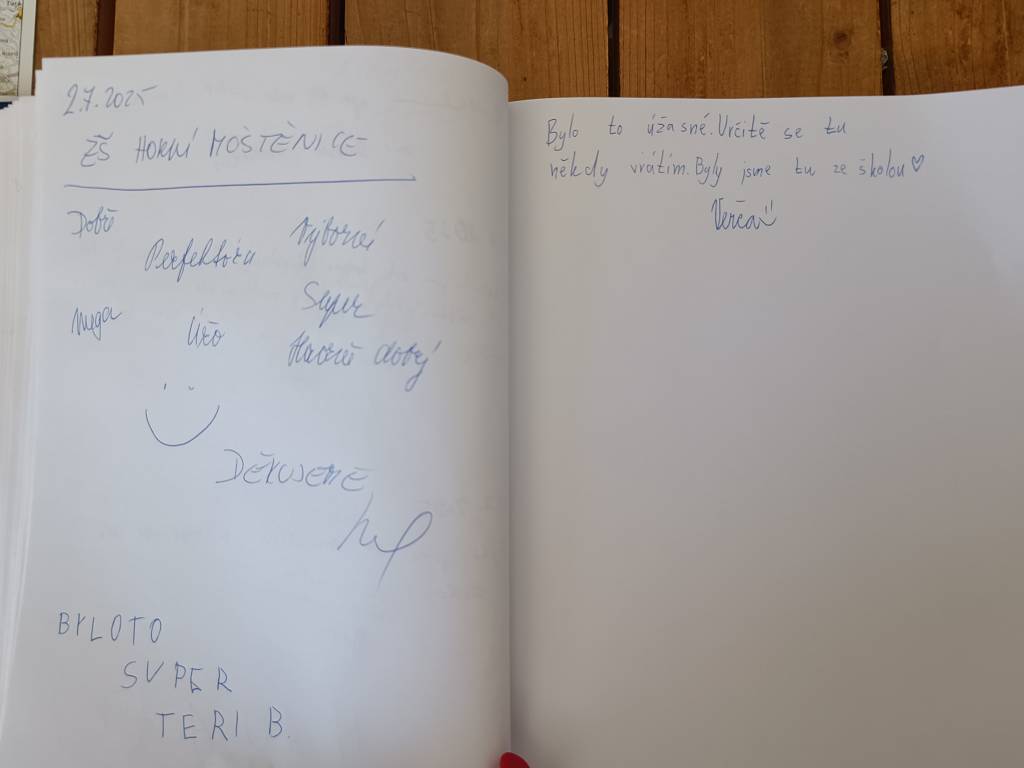 2.7.2025
ZŠ HORNÍ MOŠTĚNICE
Dobré
Perfektóza
Výborné
Super
Mega
Úžo
Hustě dobrý
DĚKUJEME
BYLOTO
SUPER
TERI B.
Bylo to úžasné. Určitě se tu
někdy vrátím. Byly jsme tu ze školou ♡
Verča